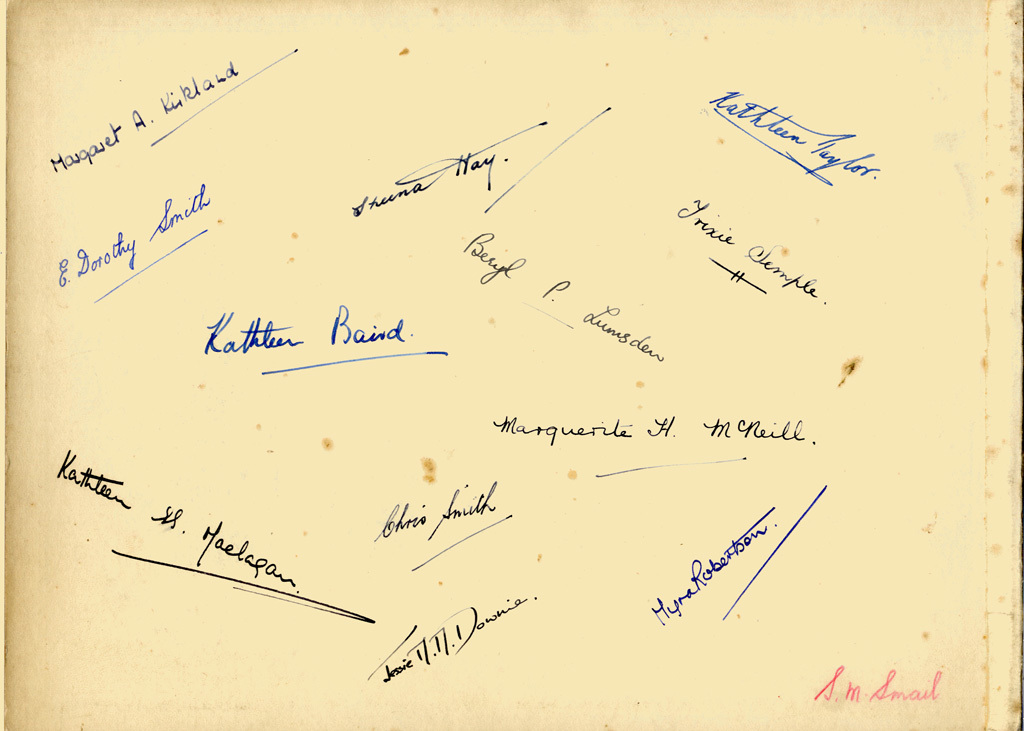 Margaret A. Kirkland
Kathleen Taylor.
Sheena Hay.
E. Dorothy Smith
Trixie Semple.
Beryl P. Lumsden
Kathleen Baird.
Marguerite H. McNeill.
Kathleen Maclagan.
Chris Smith
Myra Robertson.
Jessie M. M. Downie.
S. M. Smail